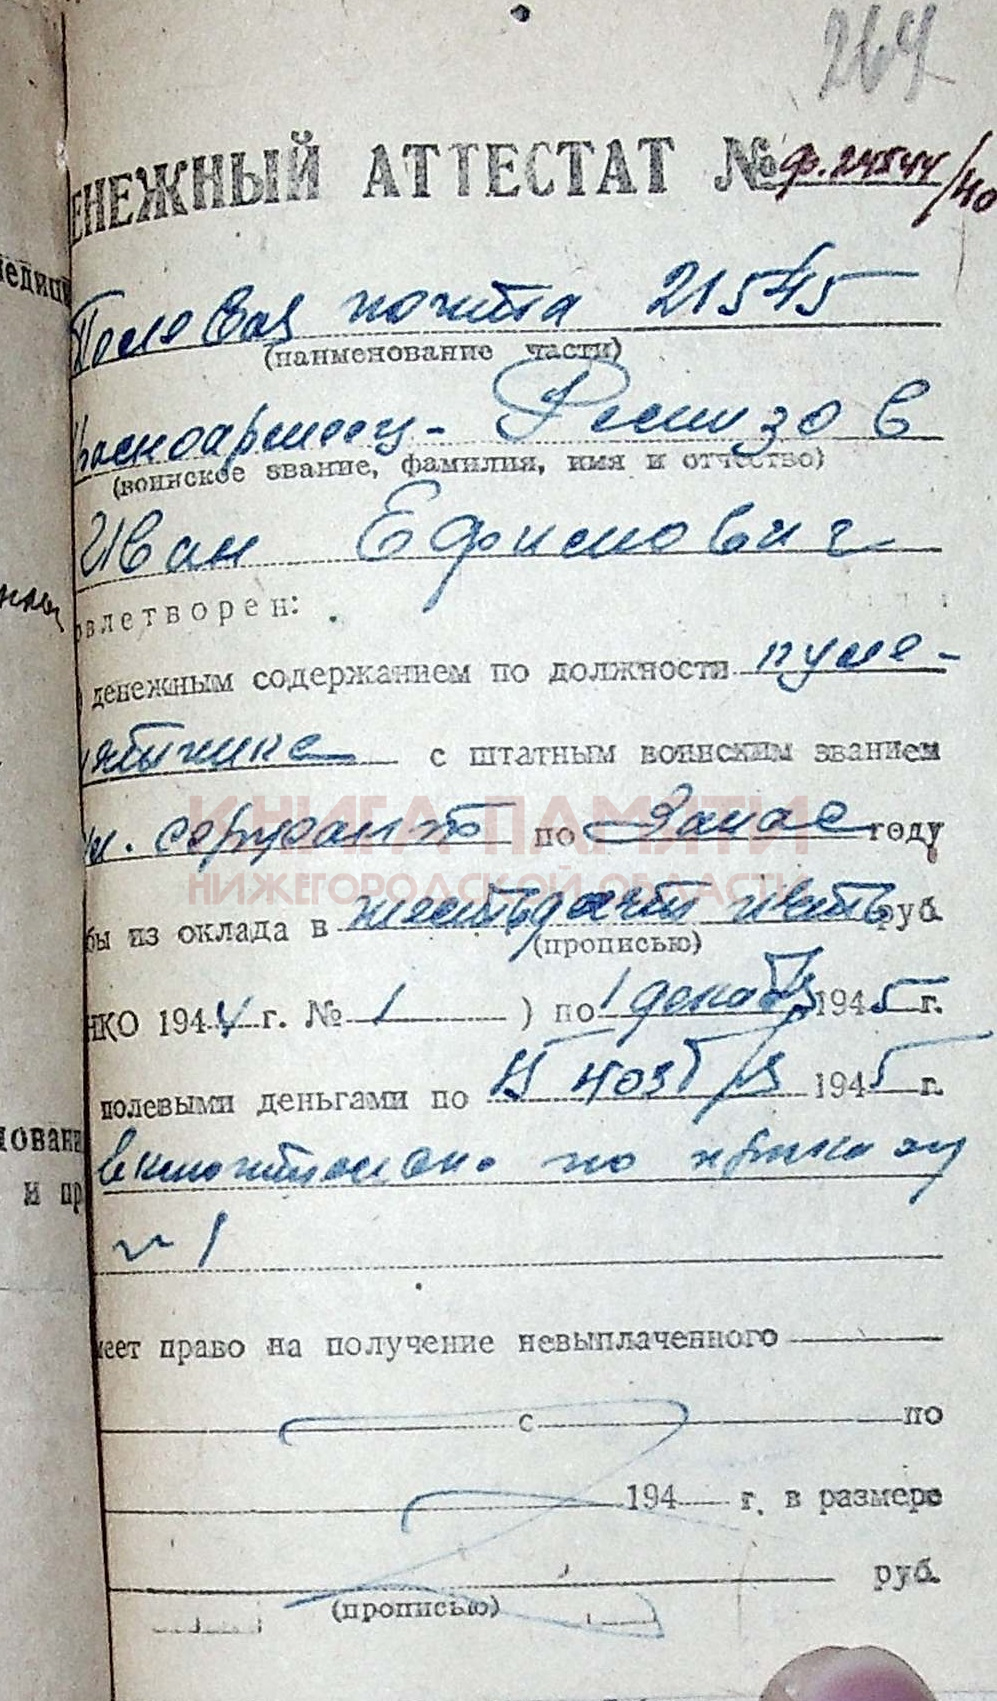 264
ЕНЕЖНЫЙ АТТЕСТАТ № ф.24544/40
едици
Полевая почта 21545
(наименование части)
красноармеец- Ремизов
(воинское звание, фамилия, имя и отчество)
Иван Ефимович
овлетворен:
денежным содержанием по должности пуле-
метчика с штатным воинским званием
мл. сержант по Запас году
КНИГА ПАМЯТИ
НИЖЕГОРОДСКОЙ ОБЛАСТИ
бы из оклада в руб.
(прописью)
НКО 1944 г. № 1 ) по 1 декабря 1945 г.
полевыми деньгами по 15 ноября 1945 г.
ковани
включительно по приказу
и пр
№ 1
меет право на получение невыплаченного
с по
194 г. в размере
руб.
(прописью)